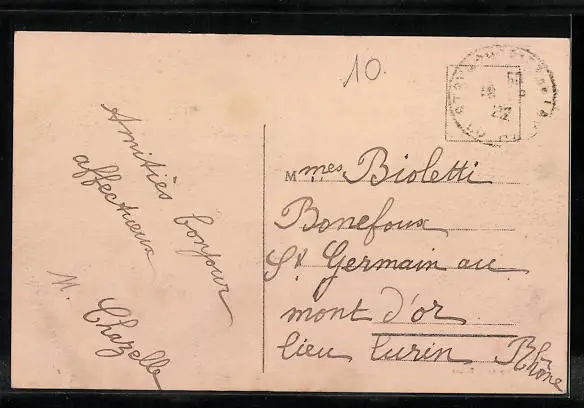 Amitiés bonjour
affectueux
M. Chazelle
10.
Mmes Bioletti
Bonefoux
St Germain au
mont d'or
lieu lurin Rhône